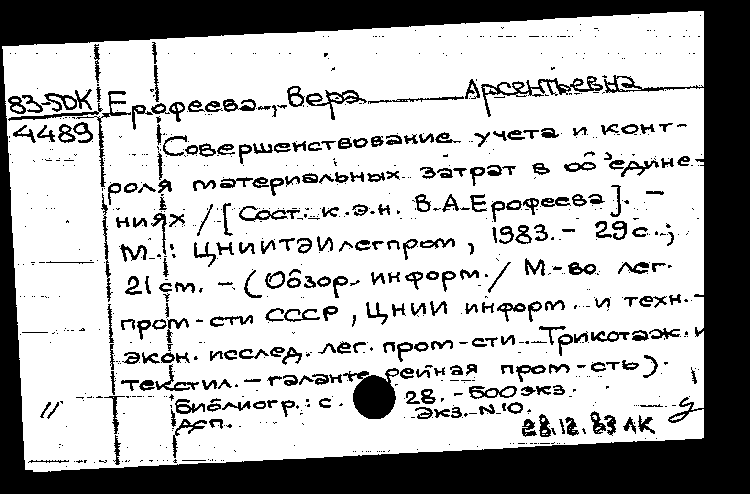 83-5DK Ерофеева, Вера Арсентьевна
4489
Совершенствование учета и конт-
роля материальных затрат в объедине-
ниях / [Сост. к.э.н. В.А.Ерофеева]. —
М.: ЦНИИТЭИлегпром, 1983. - 29 с.;
21 см. - (Обзор. информ. / М-во лег.
пром-сти СССР, ЦНИИ информ. и техн.-
экон. исслед. лег. пром-сти. Трикотаж. и
текстил.-галантерейная пром-сть).
Библиогр.: с. 28. - 500 экз.
Экз. N 10.
28.12.83 ЛК